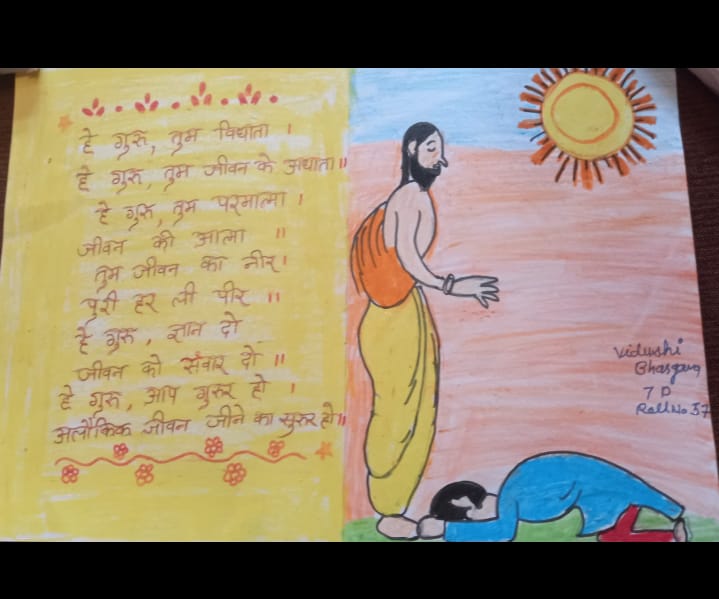 हे गुरु, तुम विधाता ।
हे गुरु, तुम जीवन के अधाता॥
हे गुरु, तुम परमात्मा ।
जीवन की आत्मा ॥
तुम जीवन का नीर।
पुरी हर ली पीर ॥
हे गुरु, ज्ञान दो
जीवन को संवार दो ॥
हे गुरु, आप गुरुर हो ।
अलौकिक जीवन जीने का सुरुर हो॥
Vidushi
Bhargava
7 D
Roll No 37